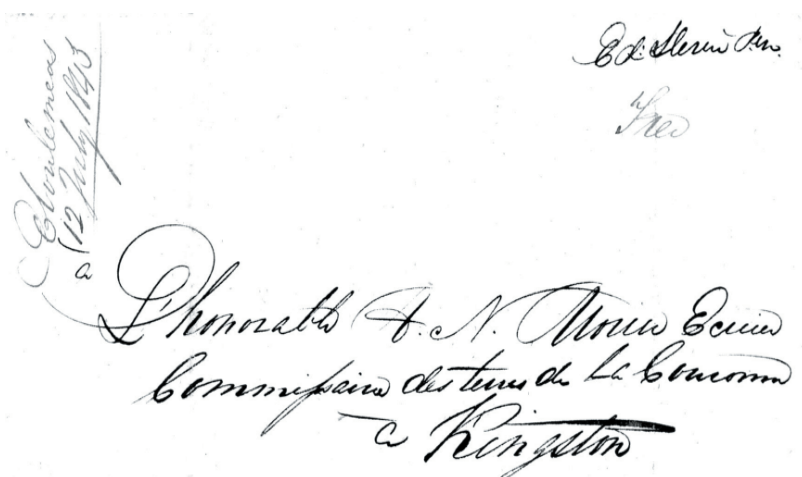 Eboulemens
12 July 1843
Free
a
L'honorable A. N. Morin Ecuier
Commissaire des terres de La Couronne
a Kingston